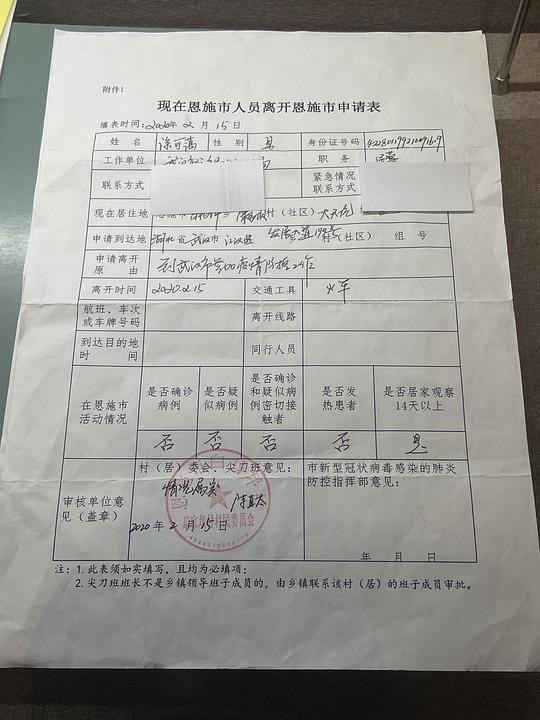 附件1
现在恩施市人员离开恩施市申请表
填表时间：2020年2月15日
姓名 性别 男 身份证号码
工作单位 职务
联系方式 紧急情况联系方式
现在居住地 村（社区）
申请到达地 湖北省武汉市江汉区 发展大道 村（社区） 组 号
申请离开原由 到武汉市参加疫情防控工作
离开时间 2020.2.15 交通工具 火车
航班、车次或车牌号码 离开线路
到达目的地时间 同行人员
在恩施市活动情况 是否确诊病例 是否疑似病例 是否确诊和疑似病例密切接触者 是否发热患者 是否居家观察14天以上
否 否 否 否 是
审核单位意见（盖章） 村（居）委会、尖刀班意见： 市新型冠状病毒感染的肺炎防控指挥部意见：
情况属实
村民委员会
2020年2月15日
年 月 日
注：1.此表须如实填写，且均为必填项；
2.尖刀班班长不是乡镇领导班子成员的，由乡镇联系该村（居）的班子成员审批。